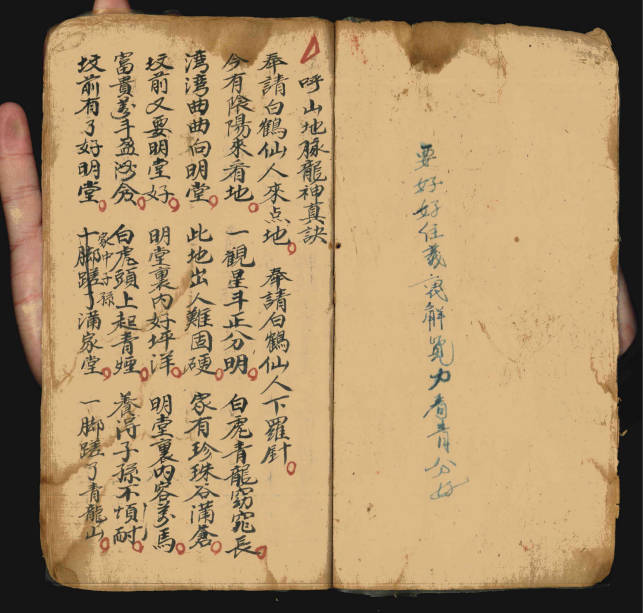 要好好住義解力看青分好
呼山地脉龍神真訣
奉請白鶴仙人來点地 奉請白鶴仙人下羅針
今有陰陽來看地 一觀星斗正分明 白虎青龍窈窕長
湾湾曲曲向明堂 此地出人難固硬 家有珍珠谷滿倉
坟前又要明堂好 明堂裏内好坪洋 明堂裏内容万馬
富貴萬斗盈 白虎頭上起青煙 養淂子孫不煩耐
坟前有了好明堂 家中子孫 十脚蹉了滿家堂 一脚蹉了青龍山